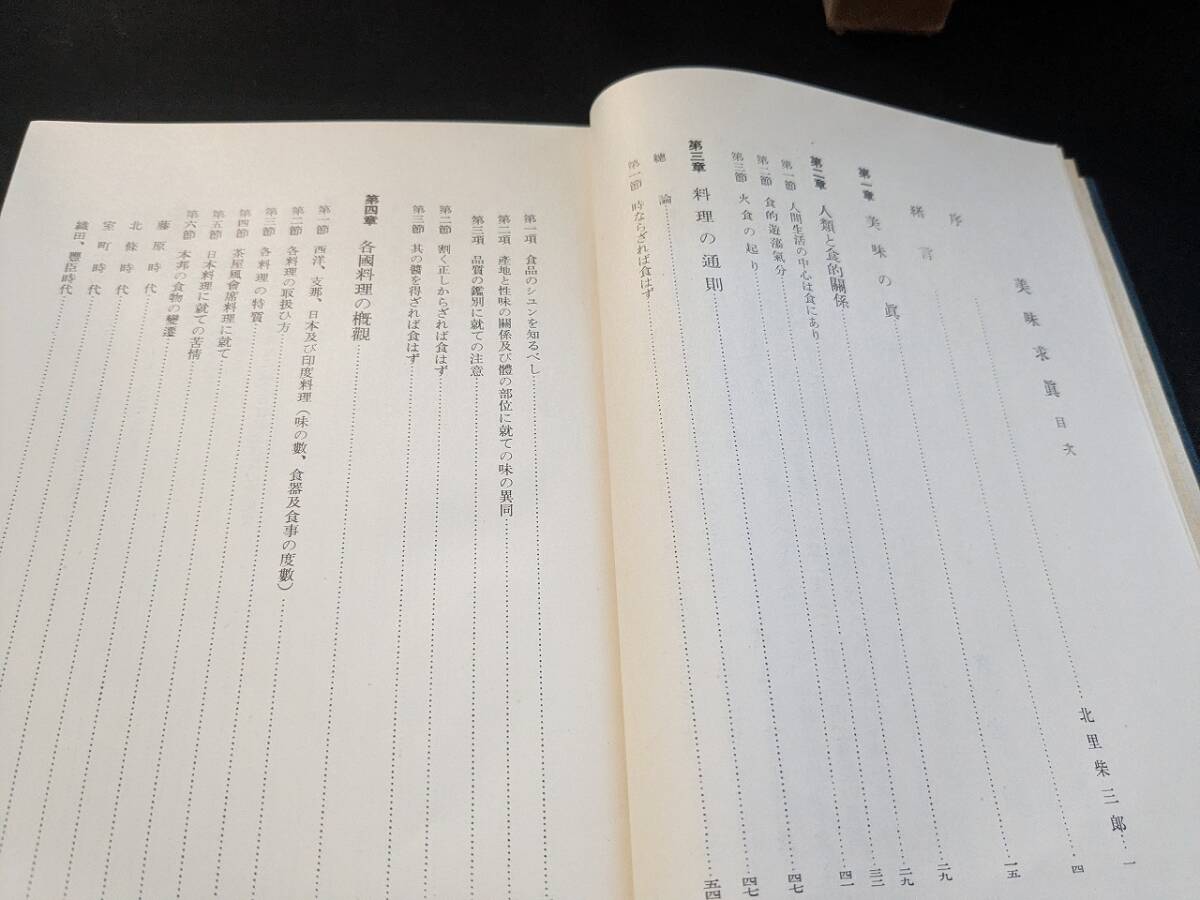 美味求眞 目次
序 北里柴三郎 一
緒言 四
第一章 美味の眞 一五
第二章 人類と食的關係 二九
第一節 人間生活の中心は食にあり 二九
第二節 食的遊蕩氣分 三二
第三節 火食の起り 四一
第三章 料理の通則 四七
總論 四七
第一節 時ならざれば食はず 五四
第一項 食品のシュンを知るべし
第二項 產地と性味の關係及び體の部位に就ての味の異同
第三項 品質の鑑別に就ての注意
第二節 割く正しからざれば食はず
第三節 其の醬を得ざれば食はず
第四章 各國料理の槪觀
第一節 西洋、支那、日本及び印度料理(味の數、食器及食事の度數)
第二節 各料理の取扱ひ方
第三節 各料理の特質
第四節 茶屋風會席料理に就て
第五節 日本料理に就ての苦情
第六節 本邦の食物の變遷
藤原時代
北條時代
室町時代
織田、豐臣時代